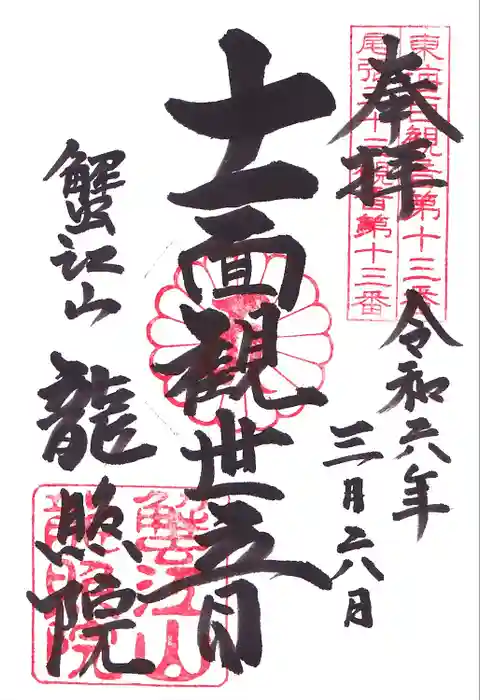 東海三十三観音第十三番
尾張三十三観音第十三番
奉拝
令和六年
三月二八日
十一面観世音
蟹江山
龍照院
蟹江山
龍照院